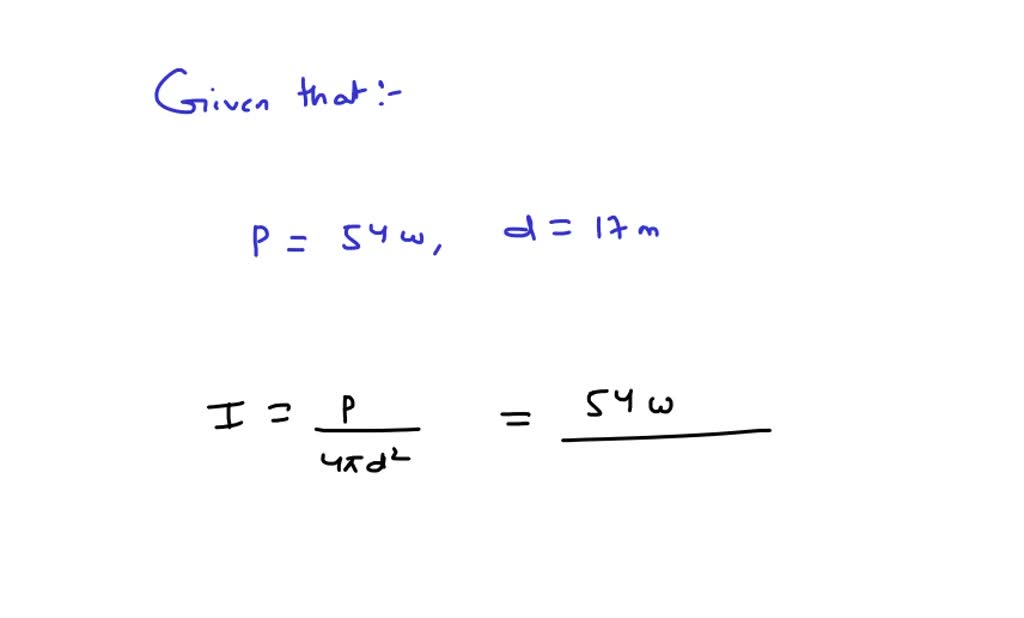 Given that:-
P = 54 w, d = 17 m
I = P / 4πd² = 54 w /